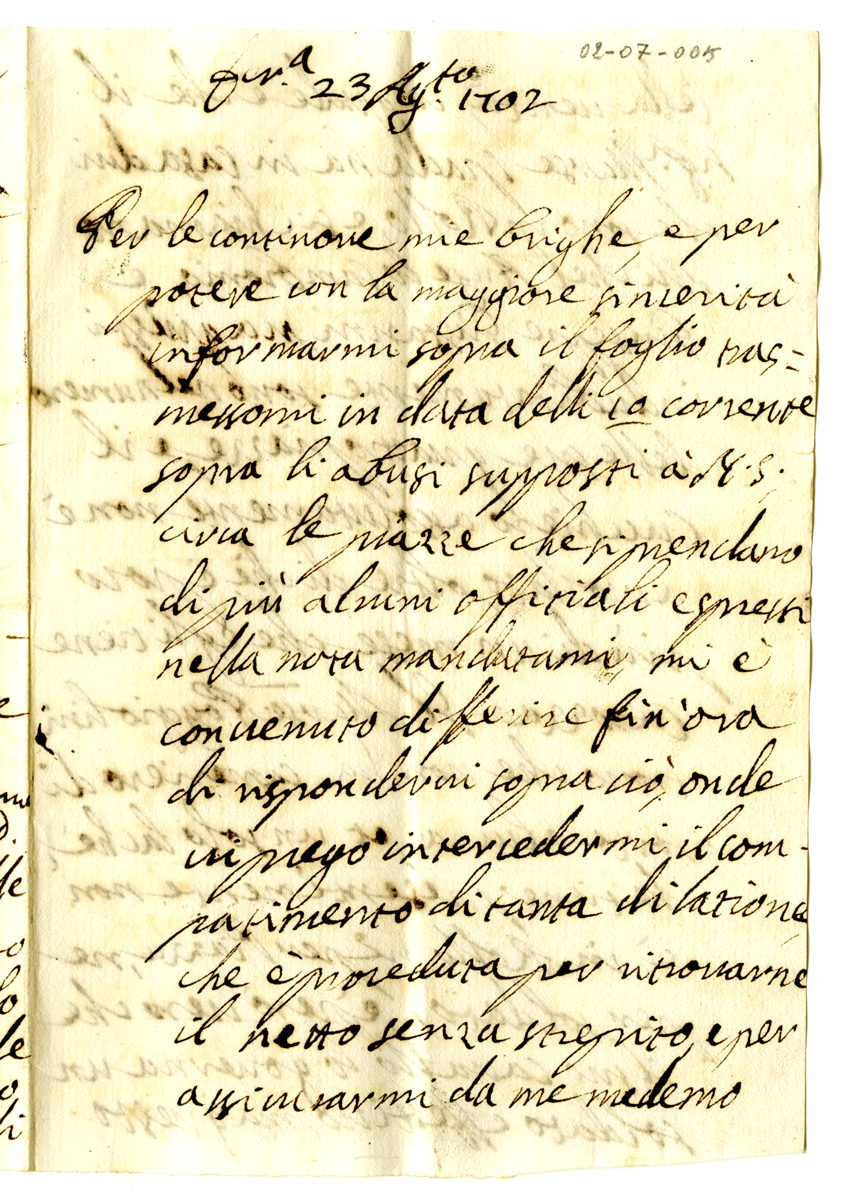 02-07-005
Fer.a 23 Ag.to 1702
Per le continove mie brighe, e per
potere con la maggiore sincerità
informarmi sopra il foglio tras=
messomi in data delli 10 corrente
sopra li abusi supposti à N.S.
circa le piazze che si prendano
di più alcuni offitiali espressi
nella nota mandatami, mi è
convenuto differire fin'ora
di rispondervi sopra ciò, onde
vi prego intercedermi il com-
patimento di tanta dilatione,
che è proceduta per ritrovarne
il netto senza strepito, e per
assicurarmi da me medemo